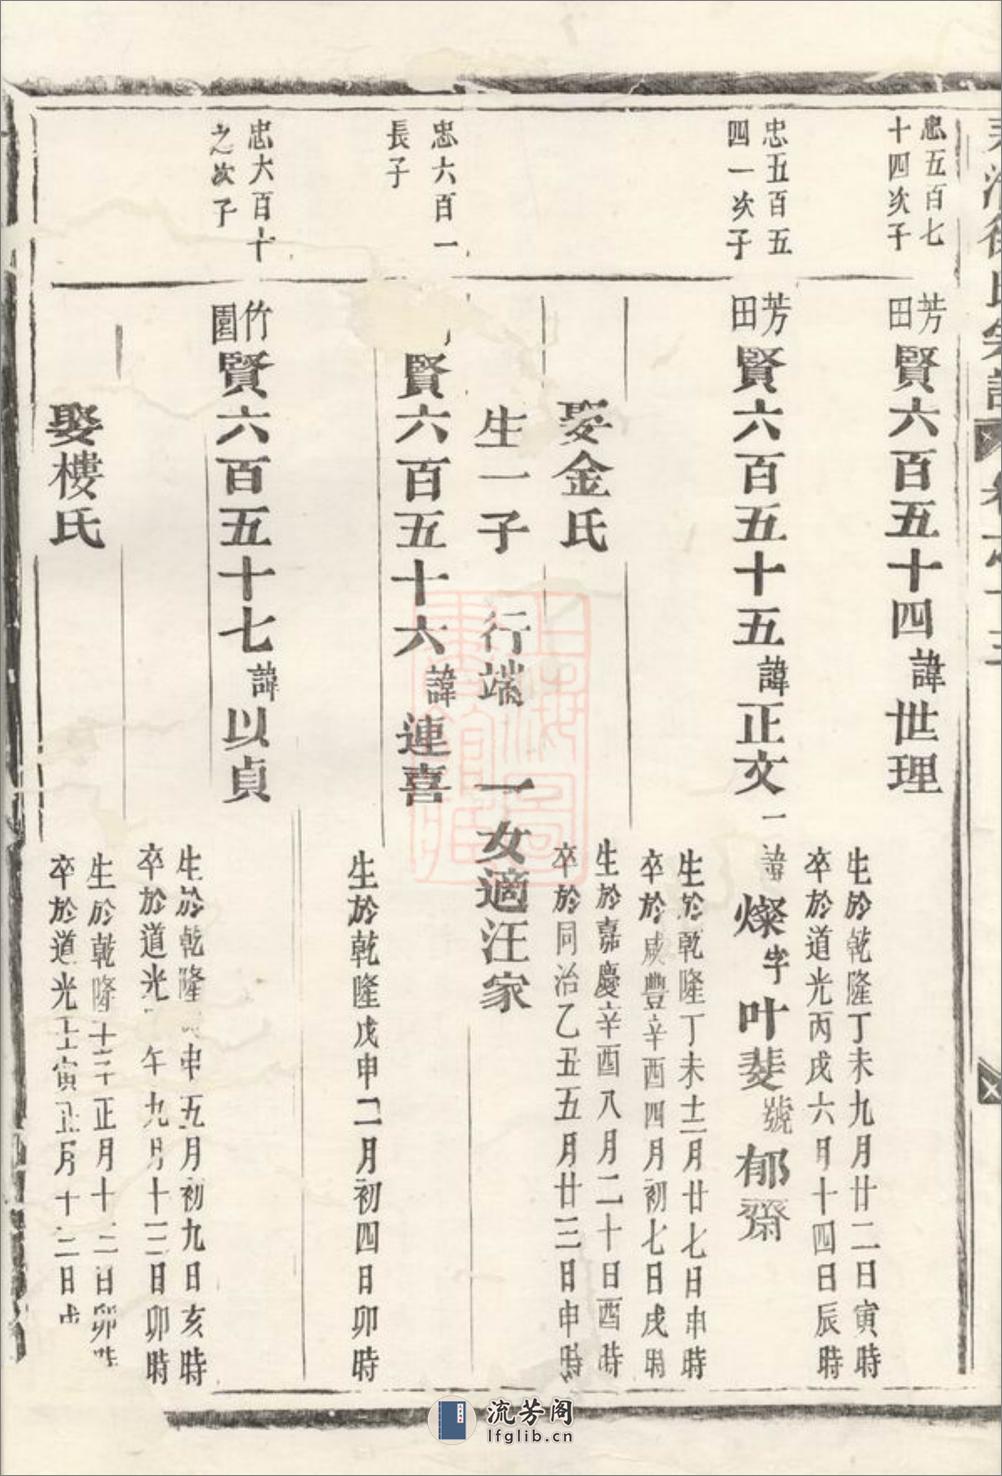 忠五百七
十四次子
芳田
賢六百五十四諱世理
生於乾隆丁未九月廿二日寅時
卒於道光丙戌六月十四日辰時
忠五百五
四一次子
芳田
賢六百五十五諱正文一諱燦字叶斐號郁齋
生於乾隆丁未十二月廿七日申時
卒於咸豐辛酉四月初七日戌時
娶金氏
生於嘉慶辛酉八月二十日酉時
卒於同治乙丑五月廿三日申時
生一子 行端 一女適汪家
忠六百一
長子
賢六百五十六諱連喜
生於乾隆戊申二月初四日卯時
忠六百十
之次子
竹園
賢六百五十七諱以貞
生於乾隆申五月初九日亥時
卒於道光午九月十三日卯時
娶樓氏
生於乾隆十三年正月十二日卯時
卒於道光壬寅正月十二日戌
流芳阁
lfglib.cn